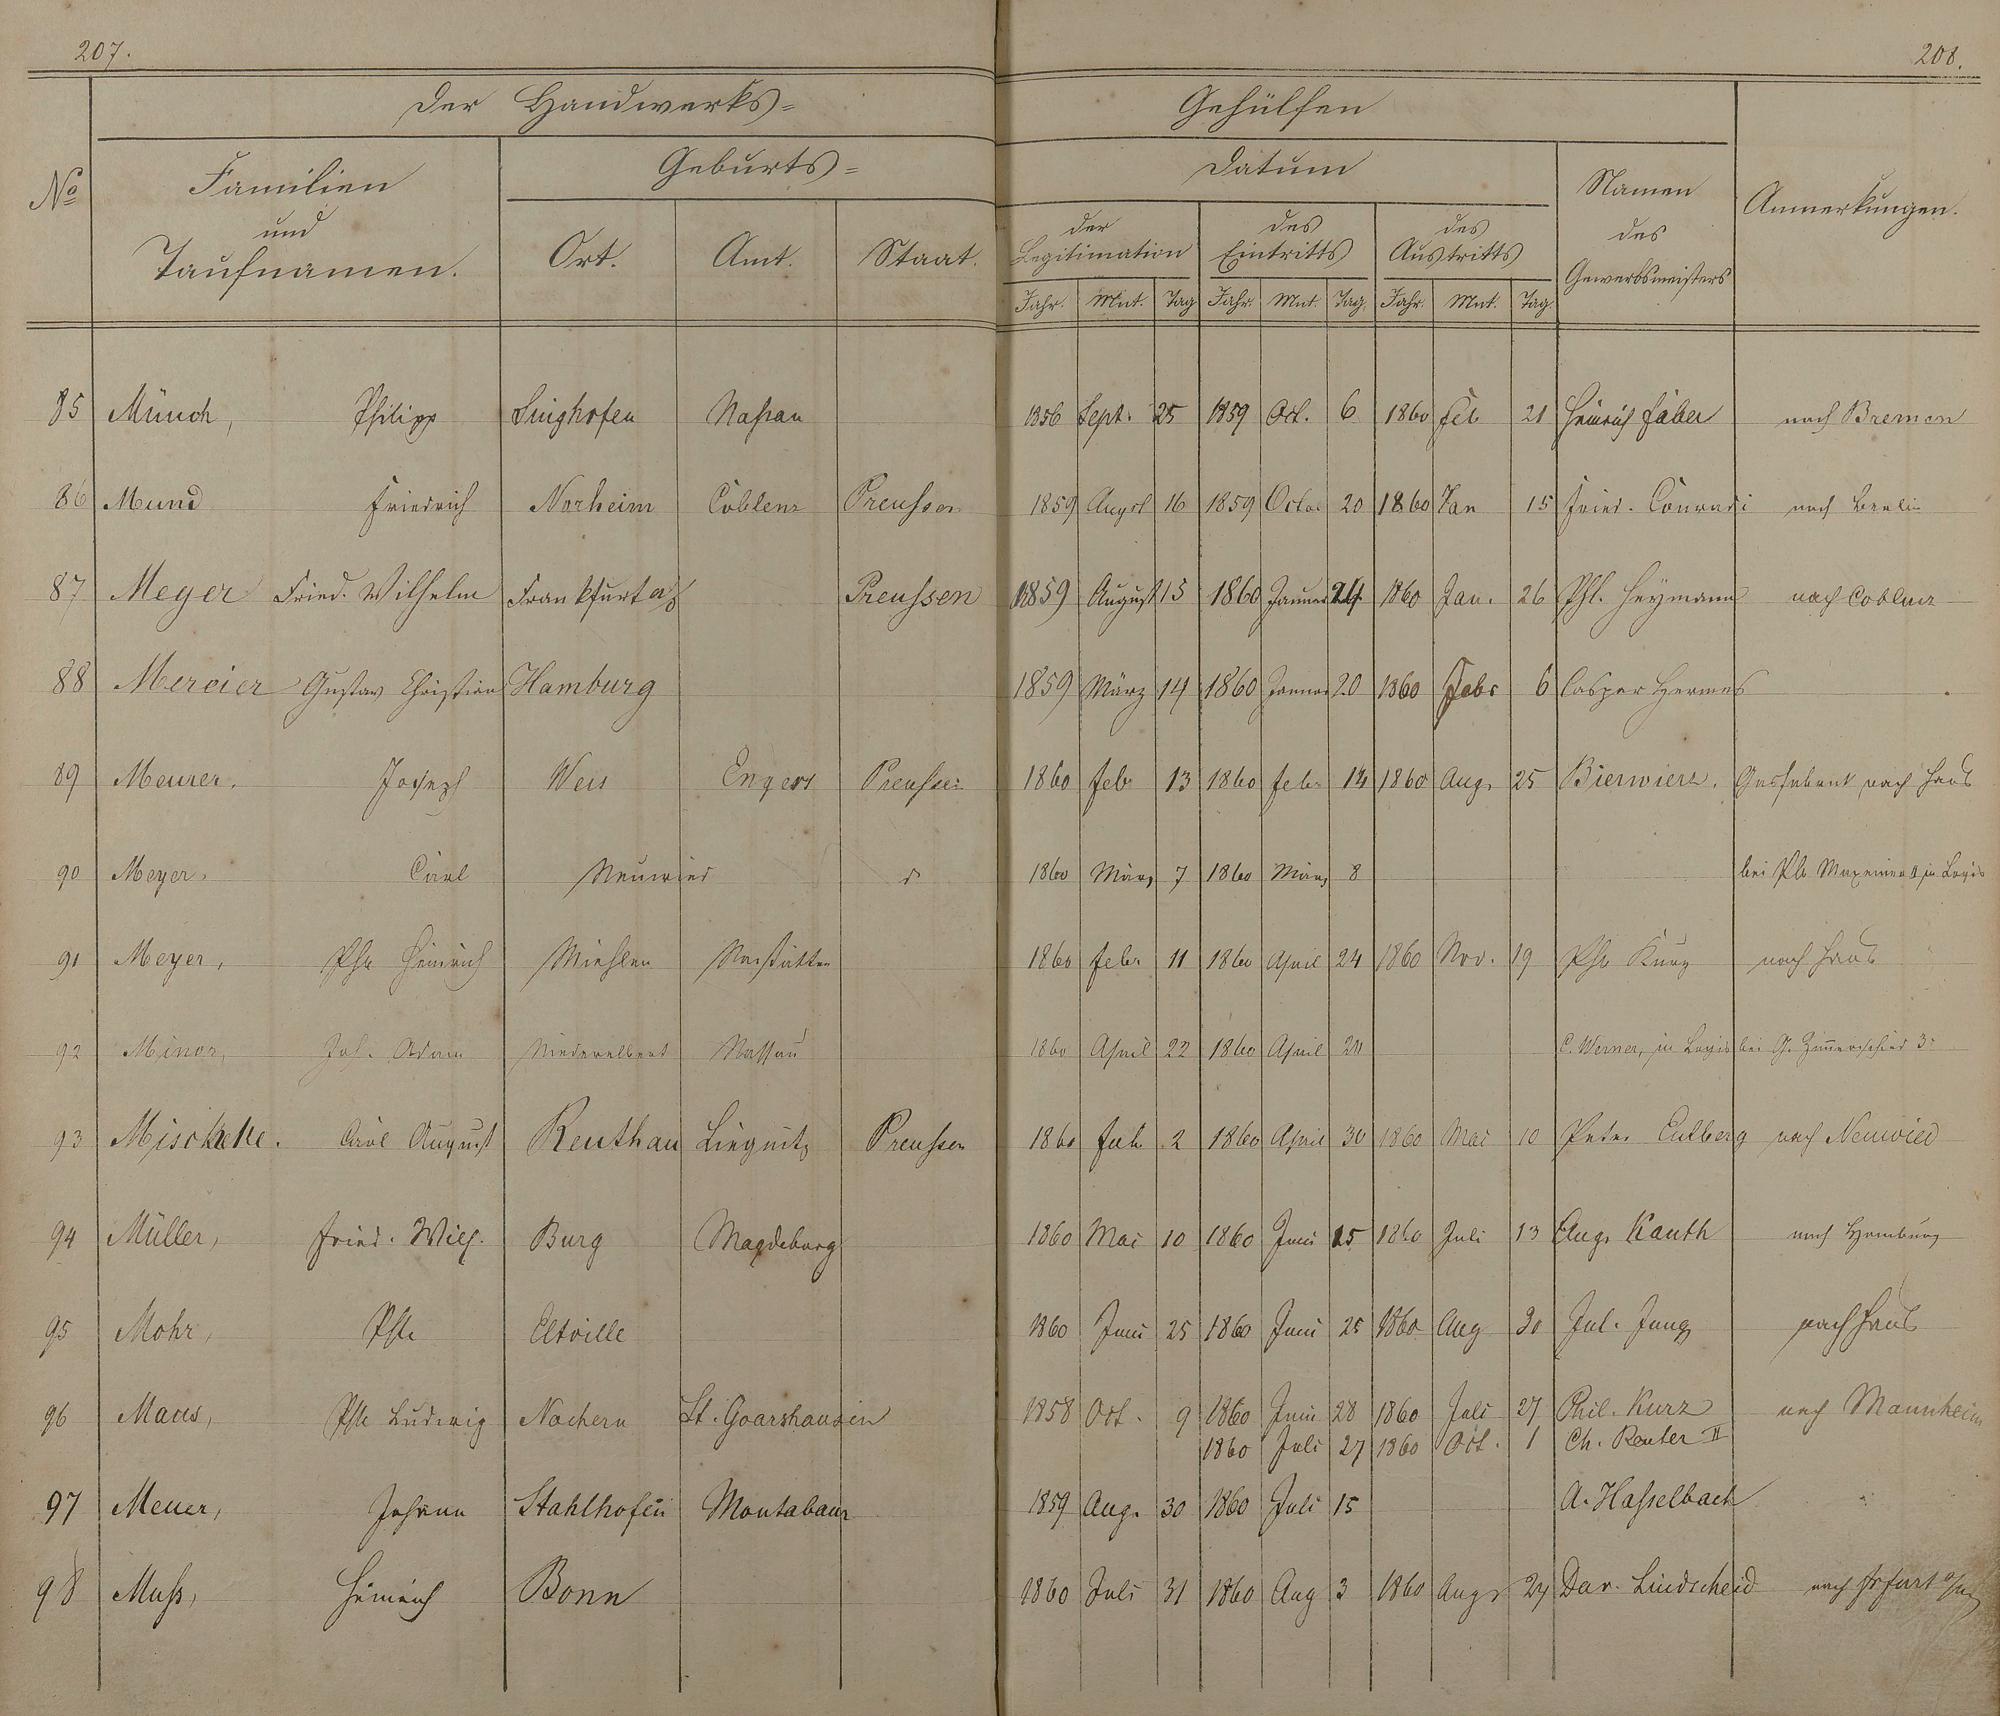 207.
208.
Der Handwerks=
Gehülfen
No
Familien
und
Taufnamen.
Geburts=
Ort. Amt. Staat.
Datum
der Legitimation
des Eintritts
des Austritts
Jahr. Mnt. Tag Jahr. Mnt. Tag. Jahr. Mnt. Tag.
Namen
des
Gewerbsmeisters
Anmerkungen.
85 Münch, Philipp Singhofen Naßau 1856 Sept. 25 1859 Oct. 6 1860 Feb 21 Heinrich Faber nach Bremen
86 Mund Friedrich Norheim Coblenz Preußen 1859 Augst 16 1859 Octor 20 1860 Jan 15 Fried. Conradi nach Berlin
87 Meyer Fried. Wilhelm Frankfurt a/o Preußen 1859 August 15 1860 Januar 24 1860 Jan. 26 Phl. Heymann nach Coblenz
88 Mercier Gustav Christian Hamburg 1859 März 14 1860 Januar 20 1860 Febr 6 Caspar Hermes
89 Meurer, Joseph Weis Engers Preußen 1860 Febr 13 1860 Febr 14 1860 Aug. 25 Bierwierz, nach Haus
90 Meyer, Carl Neuwied d 1860 März 7 1860 März 8 bei Ph. Maxeiner II in Logis
91 Meyer, Phil Heinrich Miehlen Nastätten 1860 Febr 11 1860 April 24 1860 Nov. 19 Phil Kurz nach Haus
92 Minor, Joh. Adam Niederelbert Nassau 1860 April 22 1860 April 24 C. Werner, in Logis bei G. Zimmerschied 3r
93 Carl August Reuthau Liegnitz Preußen 1860 Feb 2 1860 April 30 1860 Mai 10 Peter Eulberg nach Neuwied
94 Müller, Fried. Wilh. Burg Magdeburg 1860 Mai 10 1860 Juni 25 1860 Juli 13 Aug. Kauth nach Homburg
95 Mohr, Phil Eltville 1860 Juni 25 1860 Juni 25 1860 Aug 30 Jul. Jung nach Haus
96 Maus, Phil Ludwig Nochern St. Goarshausen 1858 Oct. 9 1860 Juni 28 1860 Juli 27 Phil. Kurz nach Mannheim
1860 Juli 27 1860 Oct. 1 Ch. Reuter II
97 Meuer, Johann Stahlhofen Montabaur 1859 Aug. 30 1860 Juli 15 A. Haßelbach
98 Muß, Heinrich Bonn 1860 Juli 31 1860 Aug 3 1860 Aug. 27 Dav. Lindscheid nach